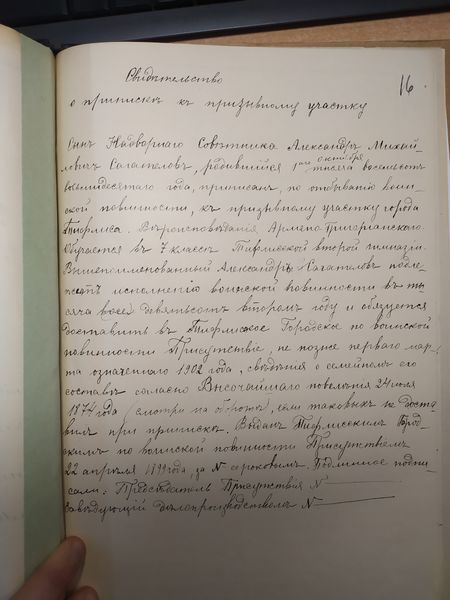 16
Свидѣтельство
о припискѣ къ призывному участку
Сынъ Надворнаго Совѣтника Александръ Михай-
ловичъ Сагателовъ, родившійся 1го октября тысяча восемьсотъ
восьмидесятаго года, приписанъ, по отбыванію воин-
ской повинности, къ призывному участку города
Тифлиса. Вѣроисповѣданія Армяно-Григоріанскаго.
Обучается въ 7 классѣ Тифлисской второй гимназіи.
Вышепоименованный Александръ Сагателовъ подле-
житъ исполненію воинской повинности въ ты-
сяча девятьсотъ второмъ году и обязуется
доставить въ Тифлисское Городское по воинской
повинности Присутствіе, не позже перваго мар-
та означеннаго 1902 года, свѣдѣнія о семейномъ его
составѣ согласно Высочайшаго повелѣнія 24 іюля
1874 года (смотри на оборотѣ), если таковыхъ не доста-
вилъ при припискѣ. Выданъ Тифлисскимъ Город-
скимъ по воинской повинности Присутствіемъ
22 апрѣля 1899 года, за № сороковымъ. Подлинное подпи-
сали: Предсѣдатель Присутствія N
Завѣдующій дѣлопроизводствомъ N